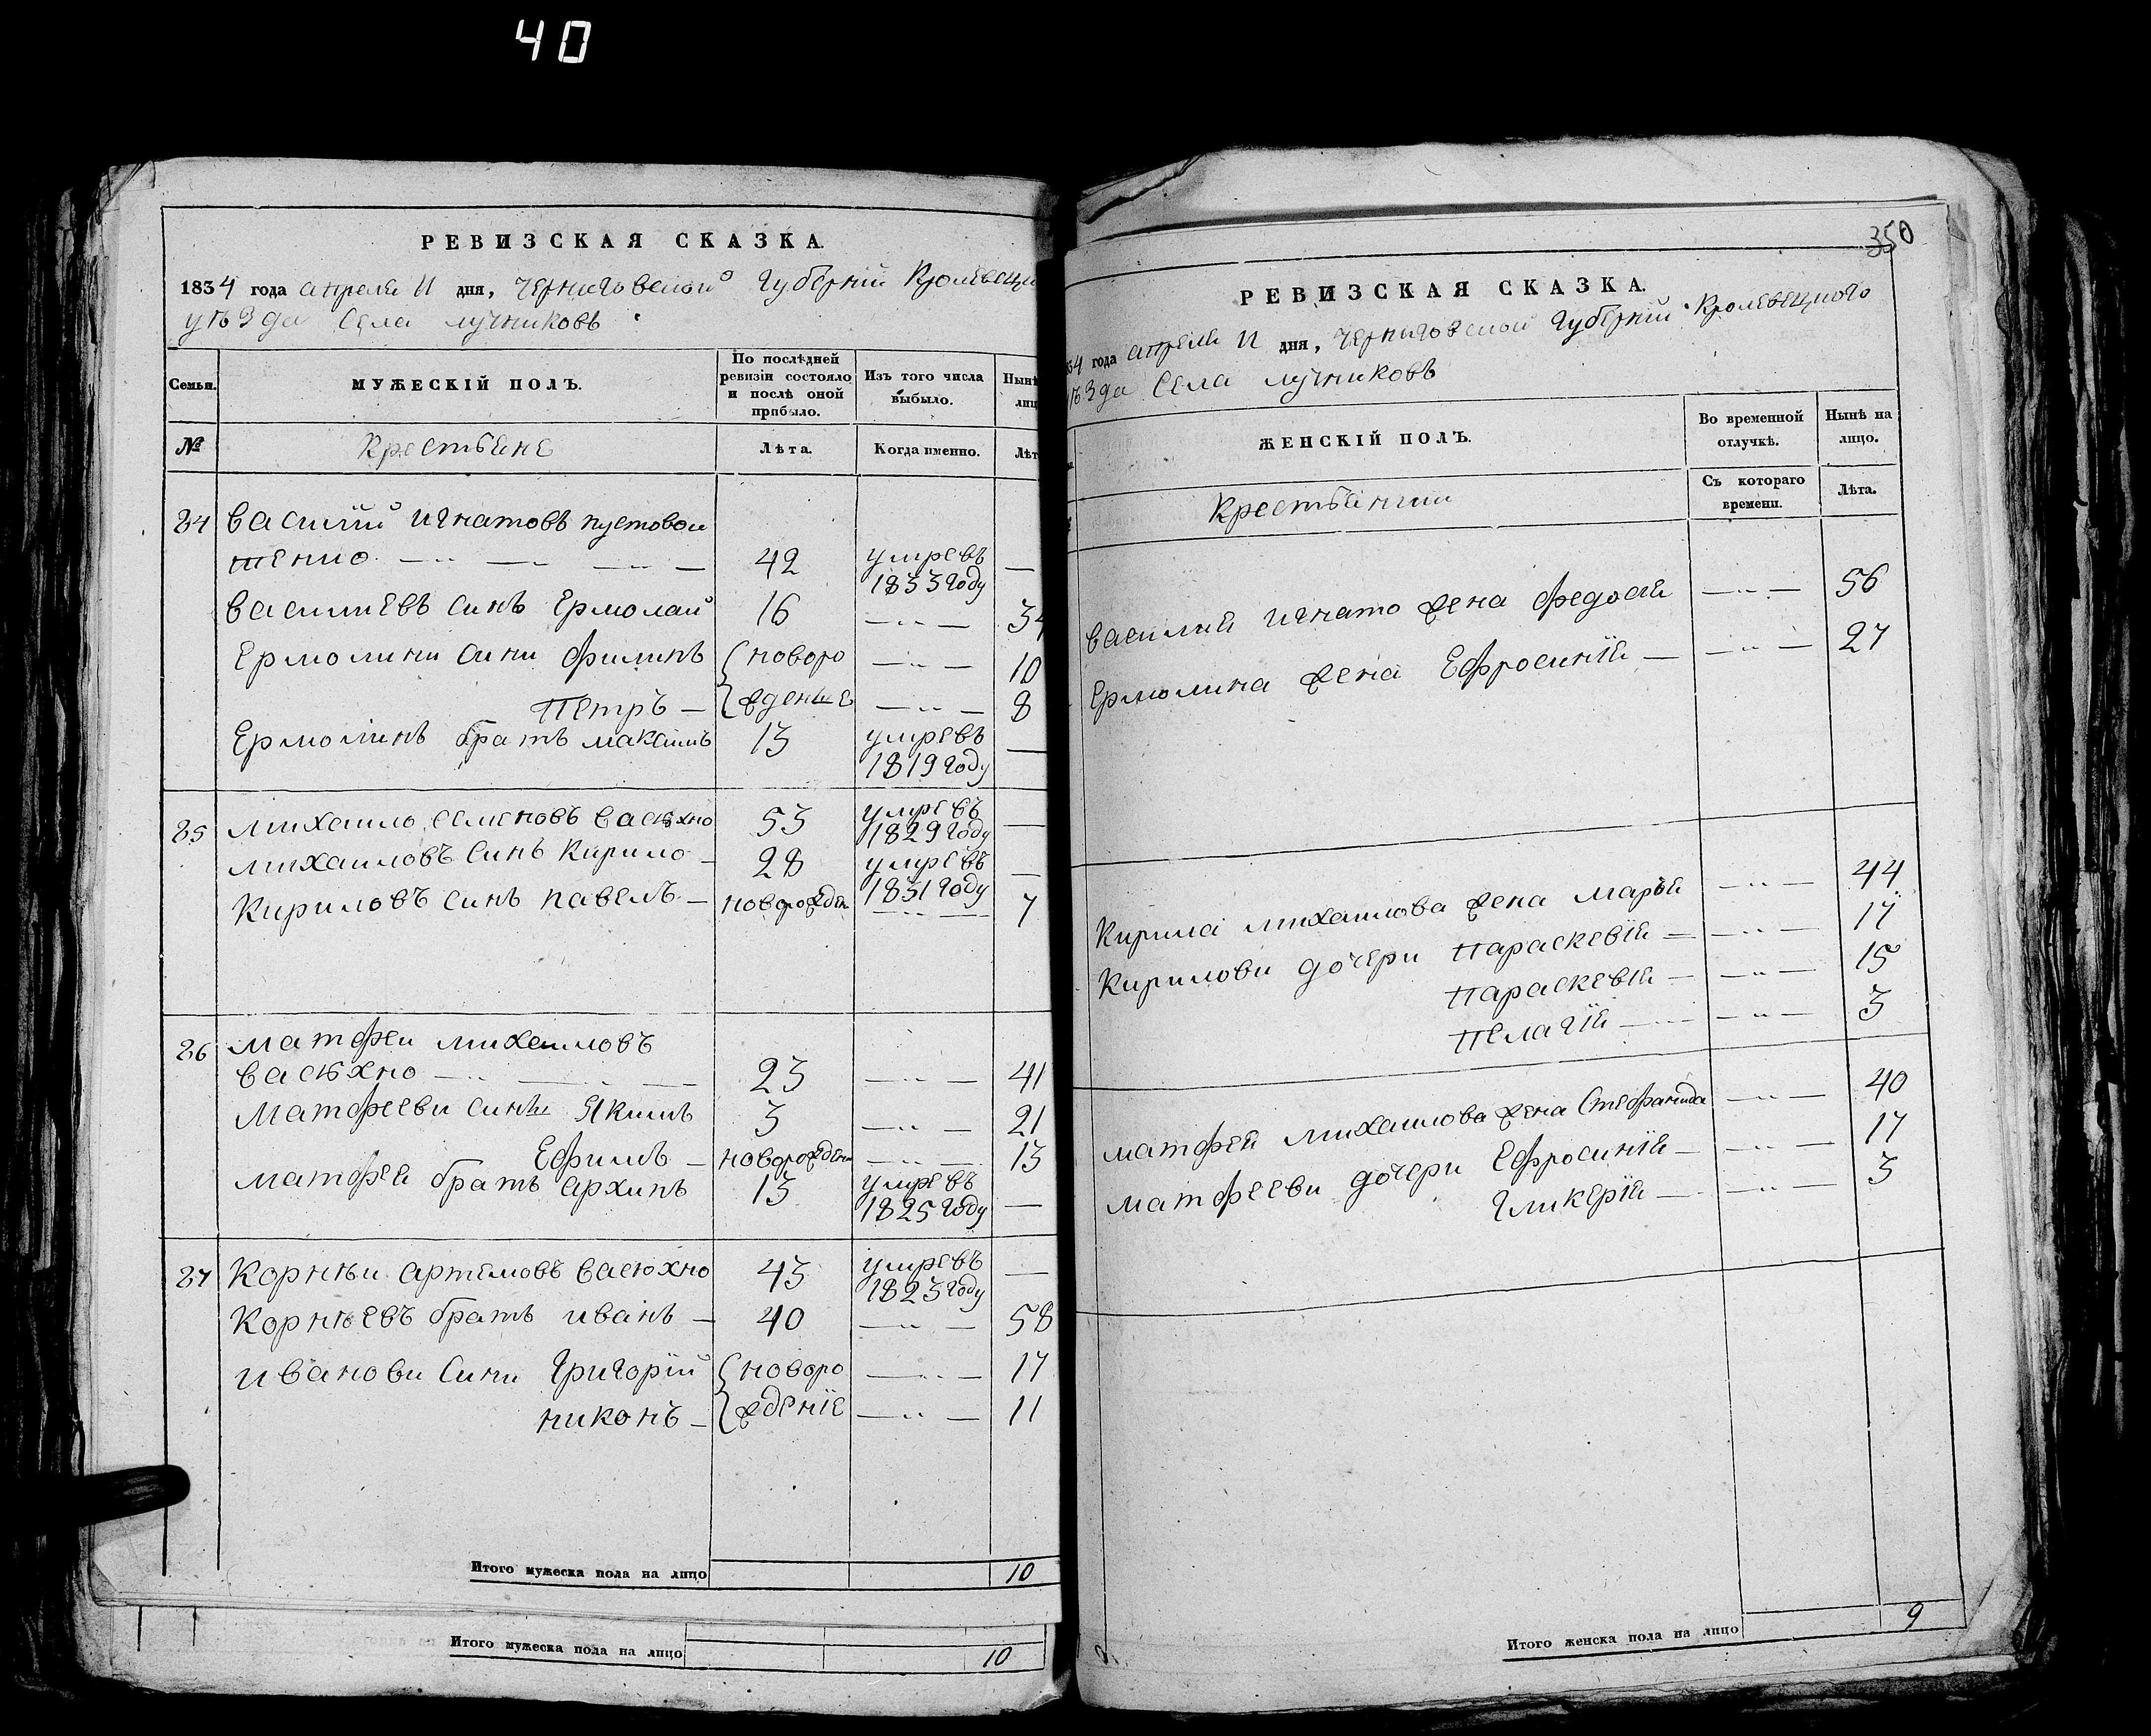 40
РЕВИЗСКАЯ СКАЗКА.
1834 года апреля 11 дня, Черниговской Губернїи Кролевецко
уѣзда Села Лучниковъ
Семьи.
МУЖЕСКІЙ ПОЛЪ.
По послѣдней ревизіи состояло и послѣ оной прибыло.
Изъ того числа выбыло.
Нынѣ лиц
№
Крестьяне
Лѣта.
Когда именно.
Лѣт
84 Василий Игнатовъ пустовой
тенко 42 умревъ 1833 году
Василиевъ синъ Ермолай 16 34
Ермолини сини Филипъ новоро 10
Петръ жденые 8
Ермолинъ братъ Максимъ 13 умревъ 1819 году
85 Михаило Семеновъ Васюхно 53 умревъ 1829 году
Михаиловъ синъ Кирило 28 умревъ 1831 году
Кириловъ синъ Павелъ новорожден 7
86 Матфеи Михаиловъ
Васюхно 23 41
Матфееви сини Якимъ 3 21
Ефимъ новорождени 13
Матфея братъ Архипъ 13 умревъ 1825 году
87 Корнѣи Артемовъ Васюхно 43 умревъ 1823 году
Корнѣевъ братъ Иванъ 40 58
Иванови сини Григорїй новоро 17
Никонъ жденїе 11
Итого мужеска пола на лицо 10
Итого мужеска пола на лицо 10
350
РЕВИЗСКАЯ СКАЗКА.
34 года апреля 11 дня, Черниговской Губернїи Кролевецкого
ѣзда Села Лучниковъ
ЖЕНСКІЙ ПОЛЪ.
Во временной отлучкѣ.
Нынѣ на лицо.
Крестьянки
Съ котораго времени.
Лѣта.
Василия Игнато жена Федося 56
Ермолина жена Ефросинїя 27
Кирила Михаилова жена Марья 44
Кирилови дочери Параскевїя 17
Параскевїя 15
Пелагїя 3
Матфея Михаилова жена Стефанида 40
Матфееви дочери Ефросинїя 17
Гликерїя 3
Итого женска пола на лицо 9